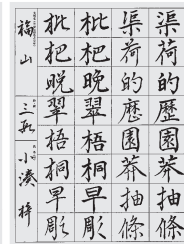 渠荷的歷園莽抽條
渠荷的歷園莽抽條
枇杷晚翠梧桐早彫
枇杷晚翠梧桐早彫
福山 三段 小湊 梓